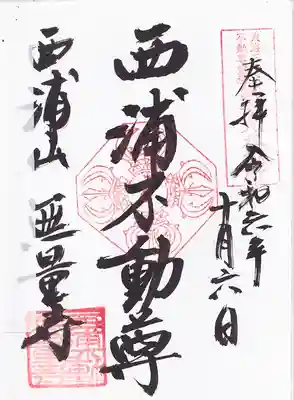 奉拝 令和六年
十月六日
西浦不動尊
西浦山 無量寺